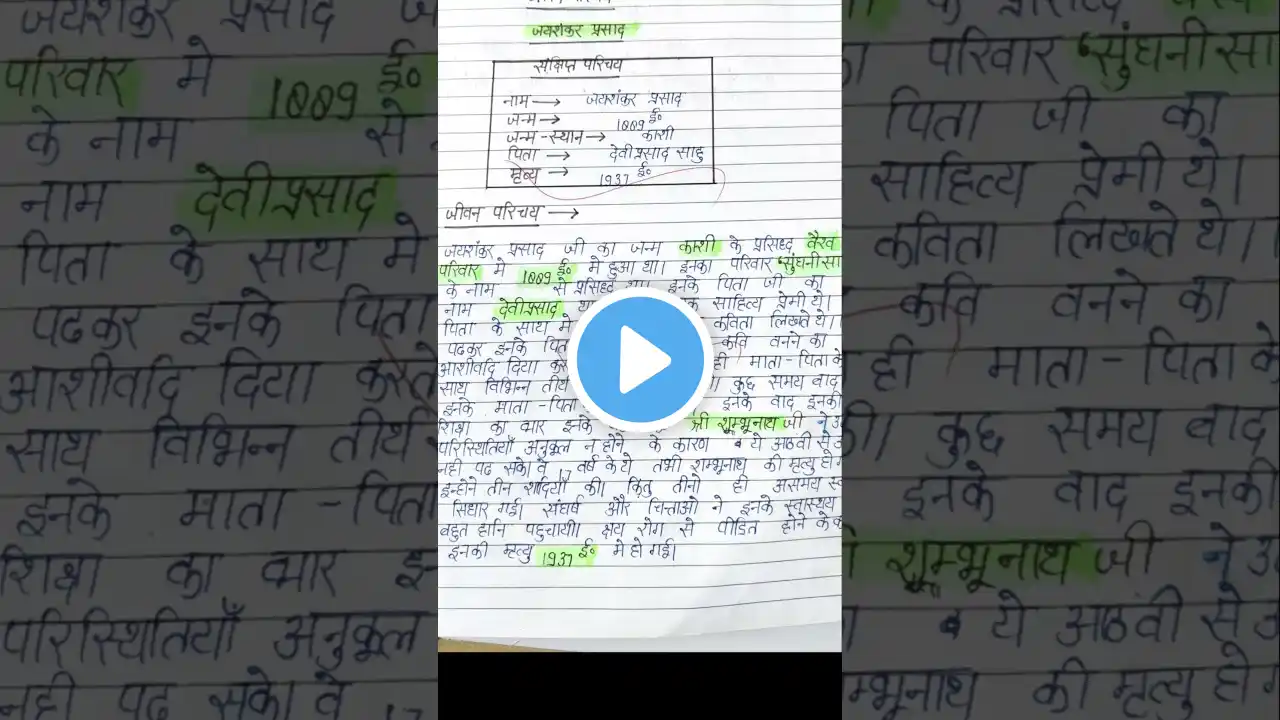 जयशंकर प्रसाद
संक्षिप्त परिचय
नाम → जयशंकर प्रसाद
जन्म → 1889 ई०
जन्म-स्थान → काशी
पिता → देवीप्रसाद साहु
मृत्यु → 1937 ई०
जीवन परिचय →
जयशंकर प्रसाद जी का जन्म काशी के प्रसिद्ध वैश्य
परिवार मे 1889 ई० मे हुआ था। इनका परिवार "सुंघनी सा
के नाम से प्रसिद्ध था। इनके पिता जी का
नाम देवीप्रसाद था साहित्य प्रेमी थे।
पिता के साथ मे कविता लिखते थे।
पढकर इनके पिता कवि वनने का
आशीर्वाद दिया करते ही माता-पिता के
साथ विभिन्न तीर्थ कुछ समय वाद
इनके माता-पिता इनके वाद इनकी
शिक्षा का भार इनके श्री शम्भूनाथ जी ने
परिस्थितियाँ अनुकूल न होने के कारण ये आठवी से
नही पढ सके। वे 17 वर्ष के थे तभी शम्भूनाथ की मृत्यु हो
इन्होने तीन शादियाँ की। किंतु तीनो ही असमय
सिधार गई। संघर्ष और चिन्ताओ ने इनके स्वास्थय
बहुत हानि पहुचायी। क्षय रोग से पीडित होने के
इनकी मृत्यु 1937 ई० मे हो गई।